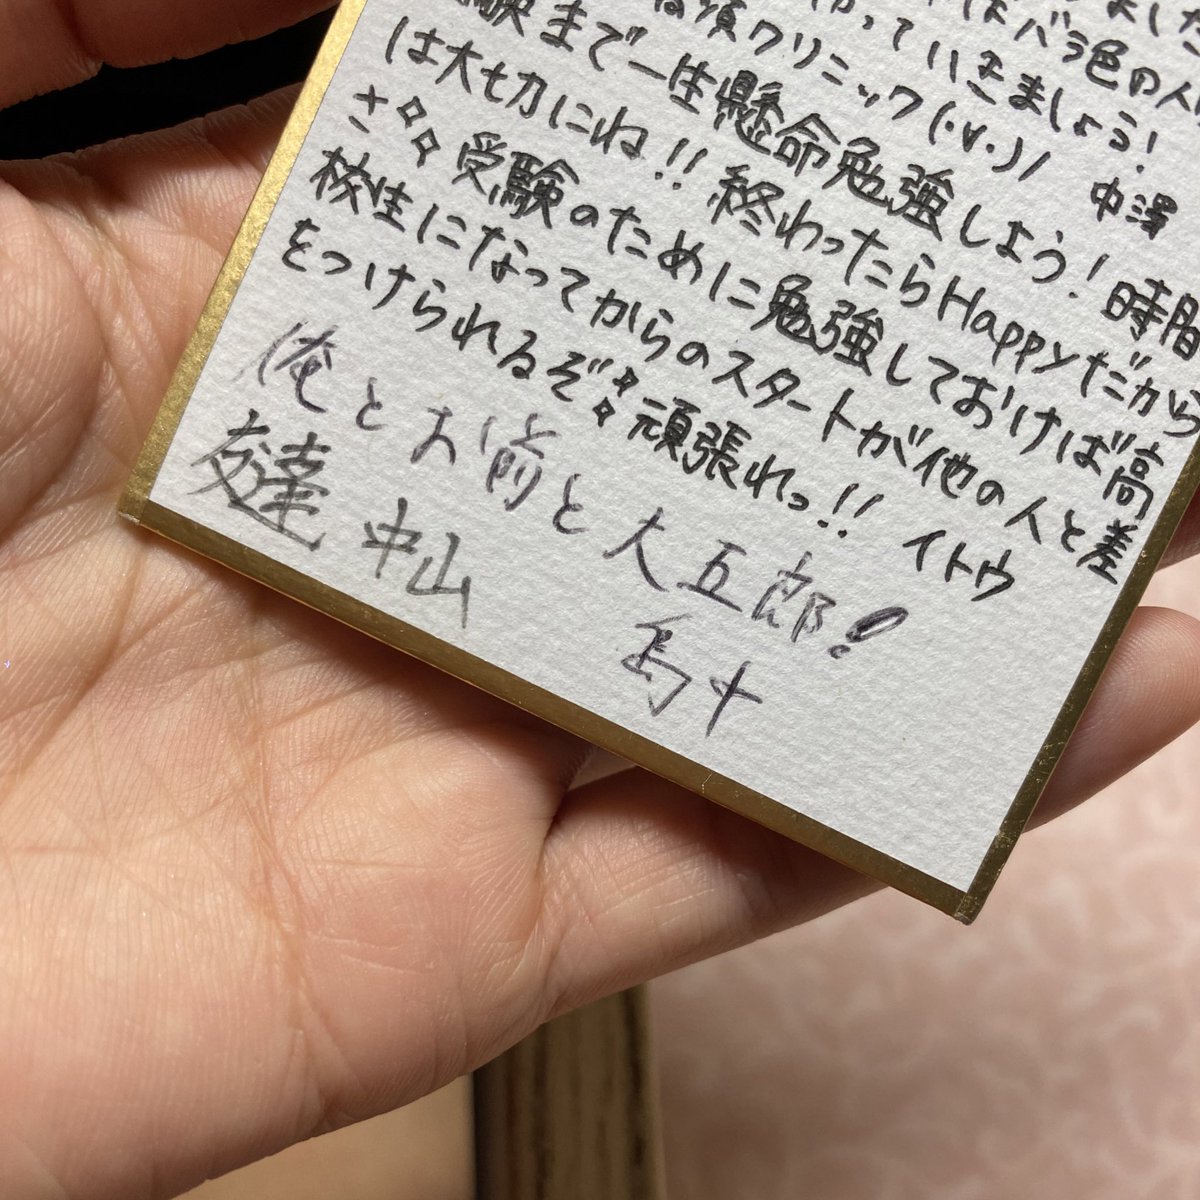 ました
はバラ色の人
かっていきましょう!
須クリニック(・∀・)/ 中澤
験まで一生懸命勉強しよう!時間
は大切にね!!終わったらHappyだから
さ✧✧受験のために勉強しておけば高
校生になってからのスタートが他の人と差
をつけられるぞ✧✧頑張れっ!! イトウ
俺とお前と大五郎!
友達 中山 島十